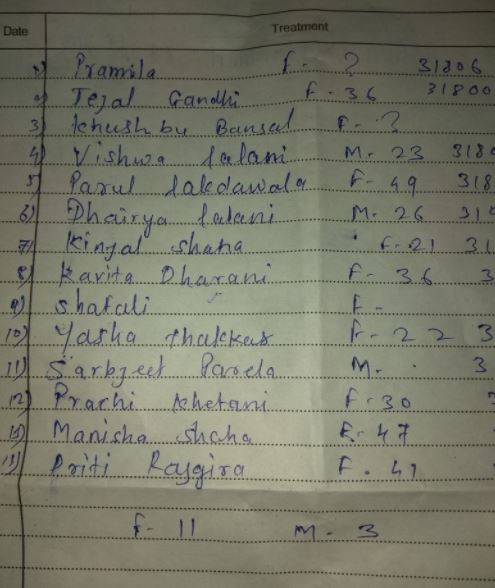 Date Treatment
1) Pramila F - ? 31806
2) Tejal Gandhi F - 36 31800
3) Khushbu Bansal F - ?
4) Vishwa Lalani M - 23 318
5) Parul Lakdawala F - 49 318
6) Dhairya Lalani M - 26 31
7) Kinjal Shaha F - 21 31
8) Kavita Dharani F - 36 3
9) Shafali F -
10) Yasha Thakkar F - 22 3
11) Sarbjeet M - 3
12) Prachi Khetani F - 30
13) Manisha Shaha F - 47
Priti Rajgira F - 41
F - 11 M - 3